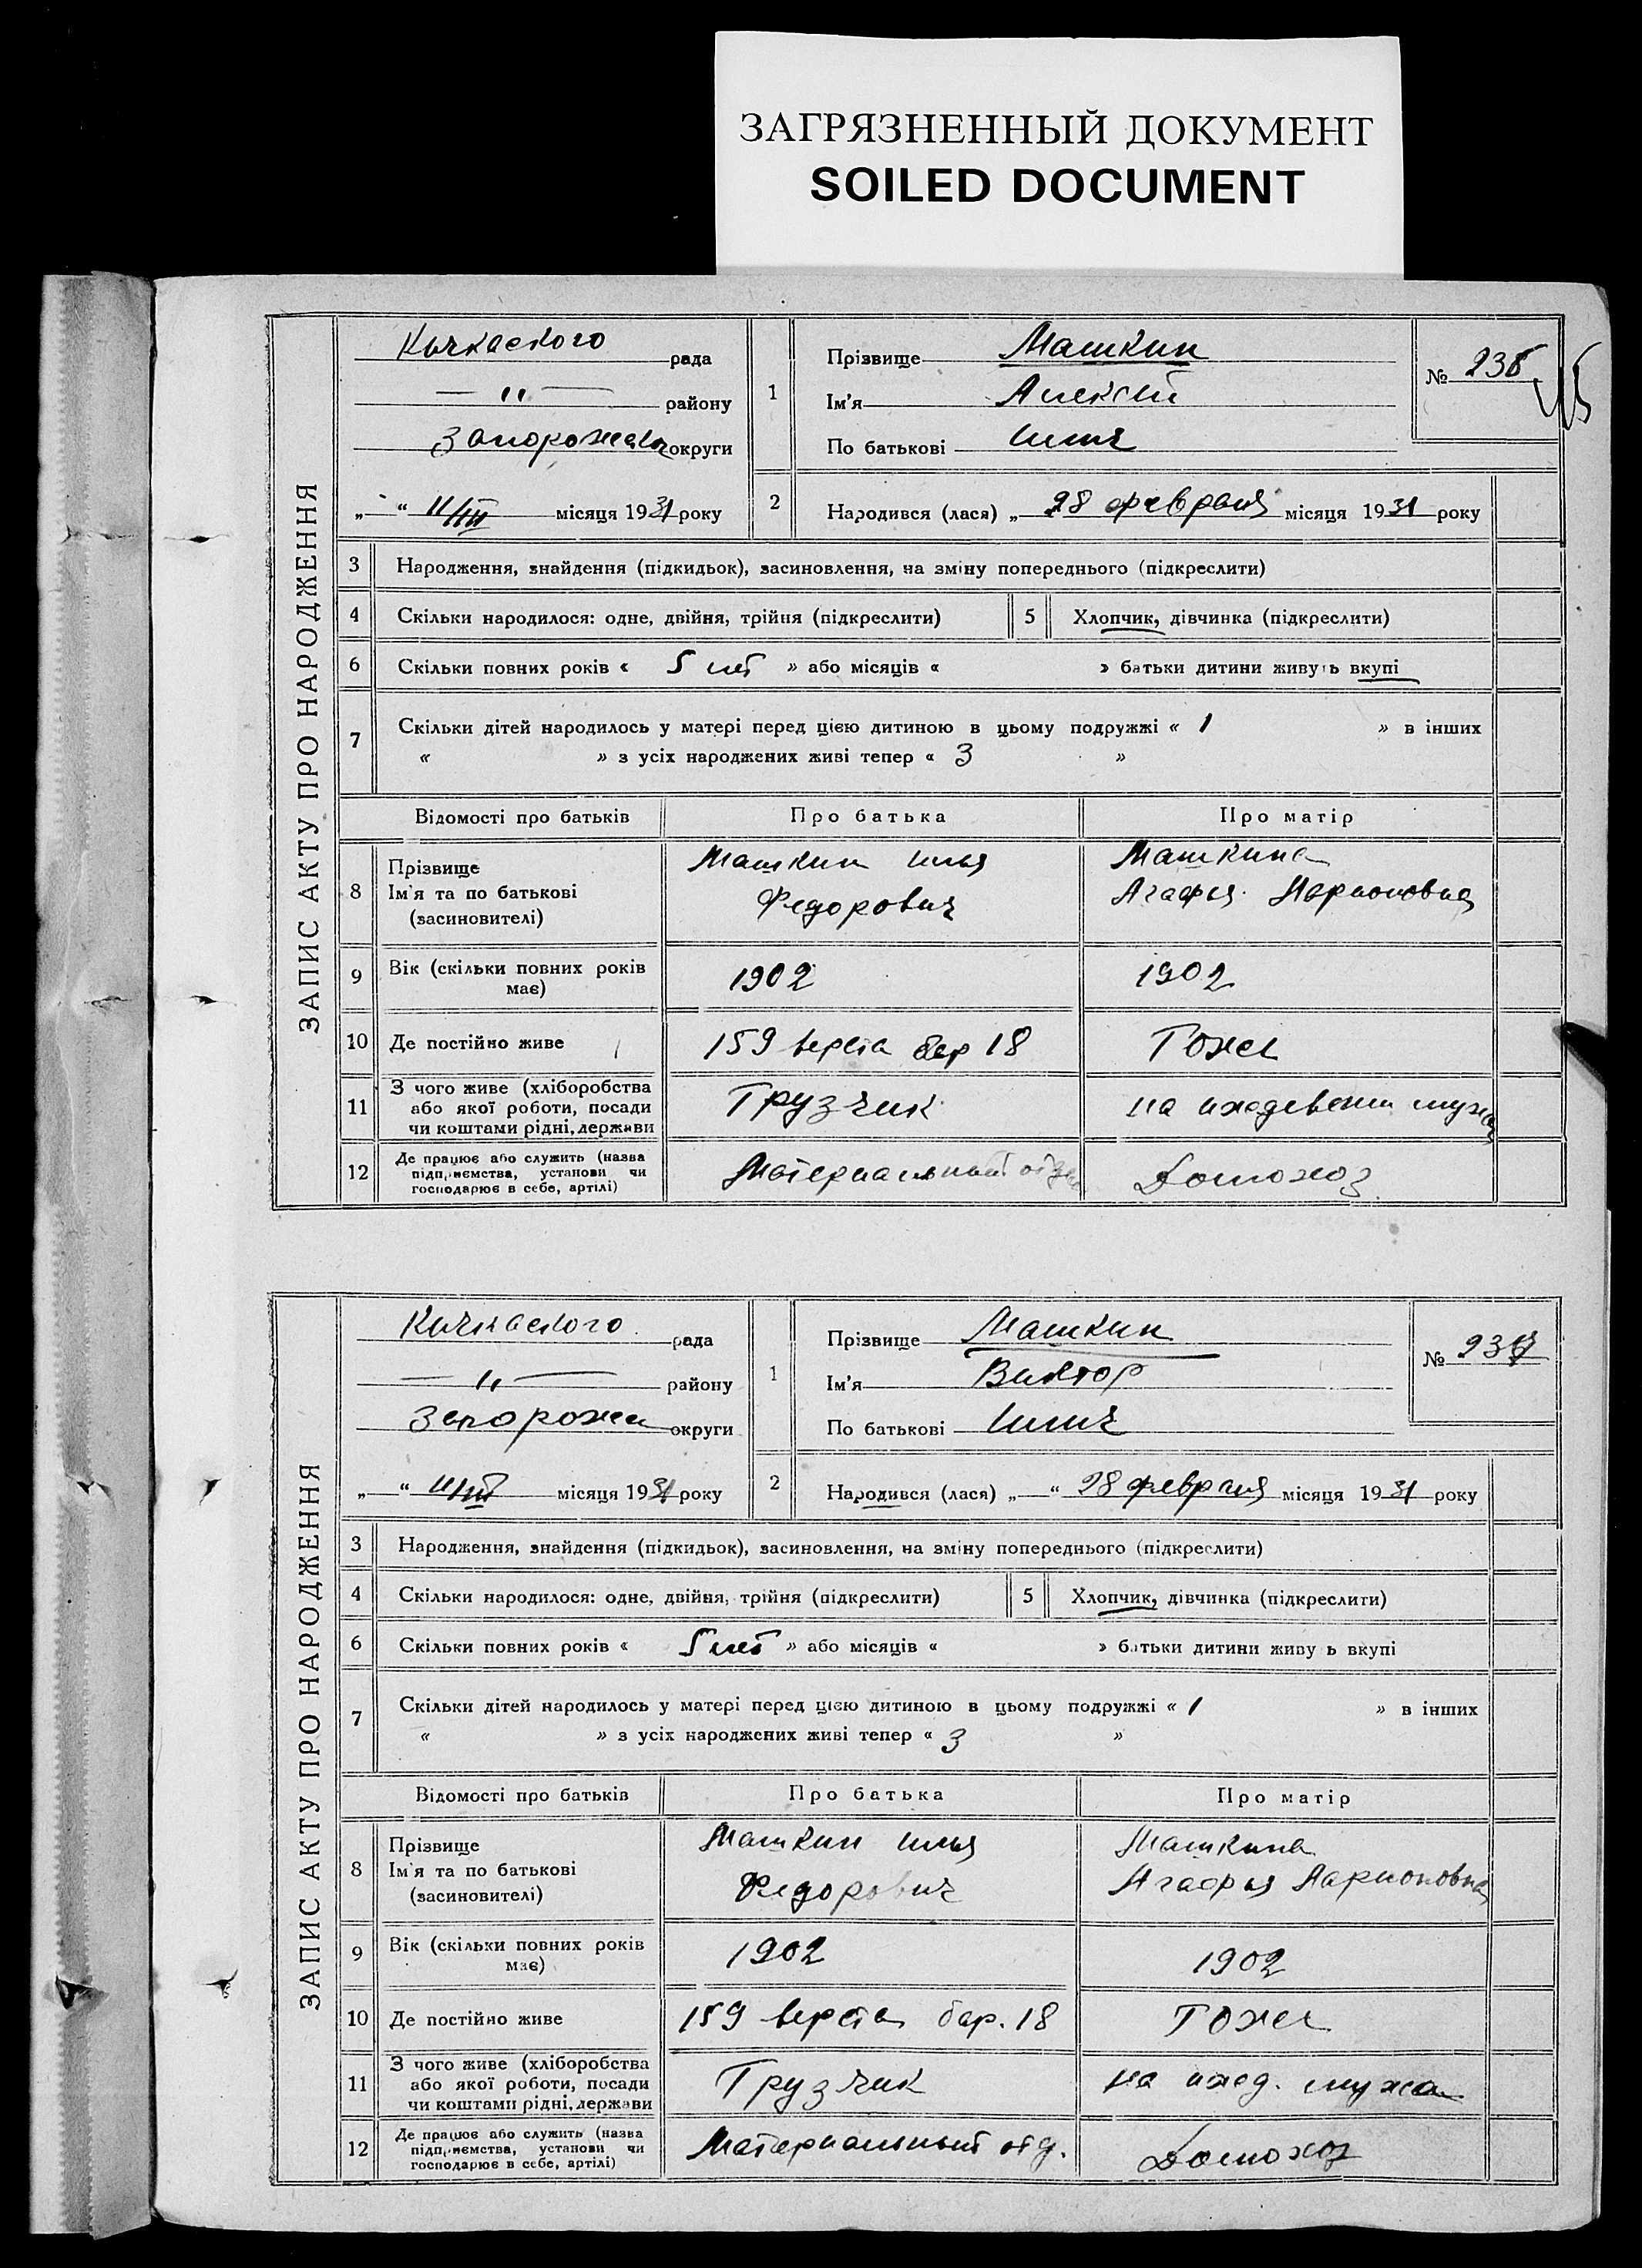 ЗАГРЯЗНЕННЫЙ ДОКУМЕНТ
SOILED DOCUMENT
ЗАПИС АКТУ ПРО НАРОДЖЕННЯ
Кичкаского рада
— " — району
Запорожск округи
„ “ 11/III місяця 1931 року
1
Прізвище Машкин
Ім'я Алексей
По батькові Ильич
№ 236
2
Народився (лася) „ 28 февраля місяця 1931 року
3 Народження, знайдення (підкидьок), засиновлення, на зміну попереднього (підкреслити)
4 Скільки народилося: одне, двійня, трійня (підкреслити) 5 Хлопчик, дівчинка (підкреслити)
6 Скільки повних років « 5 лет » або місяців « » батьки дитини живуть вкупі
7 Скільки дітей народилось у матері перед цією дитиною в цьому подружжі « 1 » в інших
« » з усіх народжених живі тепер « 3 »
Відомості про батьків Про батька Про матір
8 Прізвище
Ім'я та по батькові
(засиновителі)
Машкин Илья
Федорович
Машкина
Агафья Ларионовна
9 Вік (скільки повних років
має)
1902 1902
10 Де постійно живе 159 верста бар 18 Тоже
11 З чого живе (хліборобства
або якої роботи, посади
чи коштами рідні, держави
Грузчик на иждевении мужа
12 Де працює або служить (назва
підприємства, установи чи
господарює в себе, артілі)
Материальный отдел Домохоз
ЗАПИС АКТУ ПРО НАРОДЖЕННЯ
Кичкаского рада
— " — району
Запорожск округи
„ “ 11/III місяця 1931 року
1
Прізвище Машкин
Ім'я Виктор
По батькові Ильич
№ 237
2
Народився (лася) „ “ 28 февраля місяця 1931 року
3 Народження, знайдення (підкидьок), засиновлення, на зміну попереднього (підкреслити)
4 Скільки народилося: одне, двійня, трійня (підкреслити) 5 Хлопчик, дівчинка (підкреслити)
6 Скільки повних років « 5 лет » або місяців « » батьки дитини живу ь вкупі
7 Скільки дітей народилось у матері перед цією дитиною в цьому подружжі « 1 » в інших
« » з усіх народжених живі тепер « 3 »
Відомості про батьків Про батька Про матір
8 Прізвище
Ім'я та по батькові
(засиновителі)
Машкин Илья
Федорович
Машкина
Агафья Ларионовна
9 Вік (скільки повних років
має)
1902 1902
10 Де постійно живе 159 верста бар. 18 Тоже
11 З чого живе (хліборобства
або якої роботи, посади
чи коштами рідні, держави
Грузчик на ижд. мужа
12 Де працює або служить (назва
підприємства, установи чи
господарює в себе, артілі)
Материальный отд. Домохоз